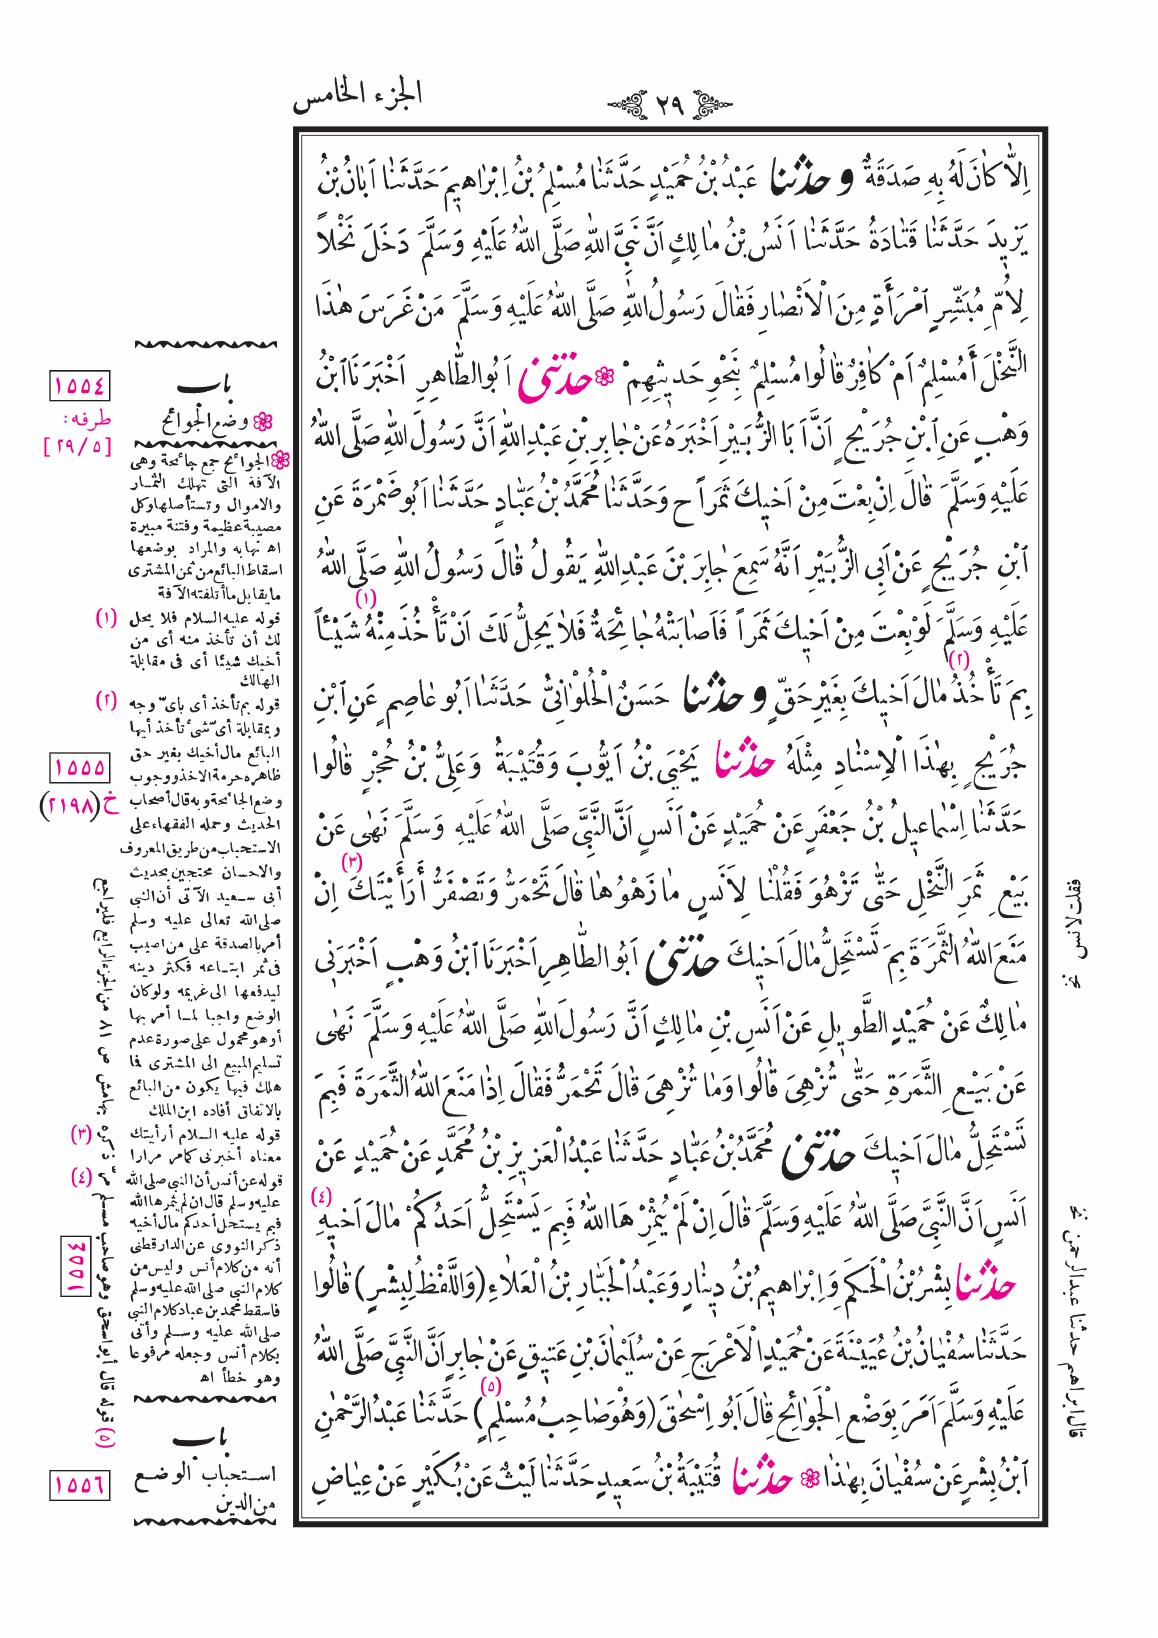 الجزء الخامس
٢٩
اِلاّٰ كٰانَ لَهُ بِهِ صَدَقَةٌ و حدثنا عَبْدُ بْنُ حُمَيْدٍ حَدَّثَنٰا مُسْلِمُ بْنُ اِبْرٰاهِيمَ حَدَّثَنٰا اَبٰانُ بْنُ
يَزِيدَ حَدَّثَنٰا قَتٰادَةُ حَدَّثَنٰا اَنَسُ بْنُ مٰالِكٍ اَنَّ نَبِىَّ اللهِ صَلَّى اللهُ عَلَيْهِ وَسَلَّمَ دَخَلَ نَخْلاً
لِاُمِّ مُبَشِّرٍ اَمْرَأَةٍ مِنَ الْاَنْصٰارِ فَقٰالَ رَسُولُ اللهِ صَلَّى اللهُ عَلَيْهِ وَسَلَّمَ مَنْ غَرَسَ هٰذَا
النَّخْلَ أَمُسْلِمٌ اَمْ كٰافِرٌ قٰالُوا مُسْلِمٌ بِنَحْوِ حَديثِهِمْ حدثنى اَبُو الطّٰاهِرِ اَخْبَرَنَا ابْنُ
وَهْبٍ عَنِ ابْنِ جُرَيْجٍ اَنَّ اَبَا الزُّبَيْرِ اَخْبَرَهُ عَنْ جٰابِرِ بْنِ عَبْدِ اللهِ اَنَّ رَسُولَ اللهِ صَلَّى اللهُ
عَلَيْهِ وَسَلَّمَ قٰالَ اِنْ بِعْتَ مِنْ اَخيكَ ثَمَراً ح وَحَدَّثَنٰا مُحَمَّدُ بْنُ عَبّٰادٍ حَدَّثَنٰا اَبُو ضَمْرَةَ عَنِ
ابْنِ جُرَيْجٍ عَنْ اَبِى الزُّبَيْرِ اَنَّهُ سَمِعَ جٰابِرَ بْنَ عَبْدِ اللهِ يَقُولُ قٰالَ رَسُولُ اللهِ صَلَّى اللهُ
عَلَيْهِ وَسَلَّمَ لَوْ بِعْتَ مِنْ اَخيكَ ثَمَراً فَاَصٰابَتْهُ جٰائِحَةٌ فَلاٰ يَحِلُّ لَكَ (١) اَنْ تَأْخُذَ مِنْهُ شَيْئاً
بِمَ تَأْخُذُ (٢) مٰالَ اَخيكَ بِغَيْرِ حَقٍّ و حدثنا حَسَنٌ الْحُلْوٰانِىُّ حَدَّثَنٰا اَبُو عٰاصِمٍ عَنِ ابْنِ
جُرَيْجٍ بِهٰذَا الْاِسْنٰادِ مِثْلَهُ حدثنا يَحْيَى بْنُ اَيُّوبَ وَقُتَيْبَةُ وَعَلِىُّ بْنُ حُجْرٍ قٰالُوا
حَدَّثَنٰا اِسْمٰاعيلُ بْنُ جَعْفَرٍ عَنْ حُمَيْدٍ عَنْ اَنَسٍ اَنَّ النَّبِىَّ صَلَّى اللهُ عَلَيْهِ وَسَلَّمَ نَهٰى عَنْ
بَيْعِ ثَمَرِ النَّخْلِ حَتّٰى تَزْهُوَ فَقُلْنٰا لِاَنَسٍ مٰا زَهْوُهٰا قٰالَ تَحْمَرُّ وَتَصْفَرُّ أَرَأَيْتَكَ (٣) اِنْ
مَنَعَ اللهُ الثَّمَرَةَ بِمَ تَسْتَحِلُّ مٰالَ اَخيكَ حدثنى اَبُو الطّٰاهِرِ اَخْبَرَنَا ابْنُ وَهْبٍ اَخْبَرَنى
مٰالِكٌ عَنْ حُمَيْدٍ الطَّويلِ عَنْ اَنَسِ بْنِ مٰالِكٍ اَنَّ رَسُولَ اللهِ صَلَّى اللهُ عَلَيْهِ وَسَلَّمَ نَهٰى
عَنْ بَيْعِ الثَّمَرَةِ حَتّٰى تُزْهِىَ قٰالُوا وَمٰا تُزْهِىَ قٰالَ تَحْمَرُّ فَقٰالَ اِذٰا مَنَعَ اللهُ الثَّمَرَةَ فَبِمَ
تَسْتَحِلُّ مٰالَ اَخيكَ حدثنى مُحَمَّدُ بْنُ عَبّٰادٍ حَدَّثَنٰا عَبْدُ الْعَزيزِ بْنُ مُحَمَّدٍ عَنْ حُمَيْدٍ عَنْ
اَنَسٍ اَنَّ النَّبِىَّ صَلَّى اللهُ عَلَيْهِ وَسَلَّمَ قٰالَ اِنْ لَمْ يُثْمِرْهَا اللهُ فَبِمَ يَسْتَحِلُّ اَحَدُكُمْ مٰالَ اَخيهِ (٤)
حدثنا بِشْرُ بْنُ الْحَكَمِ وَاِبْرٰاهيمُ بْنُ دينٰارٍ وَعَبْدُ الْجَبّٰارِ بْنُ الْعَلاٰءِ (وَاللَّفْظُ لِبِشْرٍ) قٰالُوا
حَدَّثَنٰا سُفْيٰانُ بْنُ عُيَيْنَةَ عَنْ حُمَيْدٍ الْاَعْرَجِ عَنْ سُلَيْمٰانَ بْنِ عَتيقٍ عَنْ جٰابِرٍ اَنَّ النَّبِىَّ صَلَّى اللهُ
عَلَيْهِ وَسَلَّمَ اَمَرَ بِوَضْعِ الْجَوٰائِحِ قٰالَ اَبُو اِسْحٰقَ (وَهُوَ صٰاحِبُ مُسْلِمٍ) (٥) حَدَّثَنٰا عَبْدُ الرَّحْمٰنِ
ابْنُ بِشْرٍ عَنْ سُفْيٰانَ بِهٰذٰا حدثنا قُتَيْبَةُ بْنُ سَعيدٍ حَدَّثَنٰا لَيْثٌ عَنْ بُكَيْرٍ عَنْ عِيٰاضِ
فقلت لانس نخ
قال ابراهيم حدثنا عبد الرحمن نخ
باب
وضع الجوائح
الجوائح جمع جائحة وهى
الآفة التى تهلك الثمار
والاموال وتستأصلها وكل
مصيبة عظيمة وفتنة مبيرة
اه نهايه والمراد بوضعها
اسقاط البائع من ثمن المشترى
ما يقابل ما أتلفته الآفة
(١) قوله عليه السلام فلا يحل
لك أن تأخذ منه أى من
أخيك شيئا أى فى مقابلة
الهالك
(٢) قوله بم تأخذ أى بأىّ وجه
وبمقابلة أىّ شىء تأخذ أيها
البائع مال أخيك بغير حق
ظاهره حرمة الاخذ ووجوب
وضع الجائحة وبه قال أصحاب
الحديث وحمله الفقهاء على
الاستحباب من طريق المعروف
والاحسان محتجين بحديث
أبى سعيد الآتى أن النبى
صلى الله تعالى عليه وسلم
أمر بالصدقة على من اصيب
فى ثمر ابتاعه فكثر دينه
ليدفعها الى غريمه ولو كان
الوضع واجبا لما أمر بها
أو هو محمول على صورة عدم
تسليم المبيع الى المشترى فما
هلك فيها يكون من البائع
بالاتفاق أفاده ابن الملك
(٣) قوله عليه السلام أرأيتك
معناه أخبرنى كما مر مرارا
(٤) قوله عن أنس أن النبى صلى الله
عليه وسلم قال ان لم يثمرها الله
فبم يستحل أحدكم مال أخيه
ذكر النووى عن الدارقطنى
أنه من كلام أنس وليس من
كلام النبى صلى الله عليه وسلم
فاسقط محمد بن عباد كلام النبى
صلى الله عليه وسلم وأتى
بكلام أنس وجعله مرفوعا
وهو خطأ اه
باب
استحباب الوضع
من الدين
(٥) قوله قال أبو اسحق وهو صاحب مسلم مرّ ذكره بهامش ص ٨١ من الجزء الرابع فليراجع
١٥٥٤
طرفه:
[٢٩/٥]
١٥٥٥
خ (٢١٩٨)
١٥٥٤
١٥٥٦